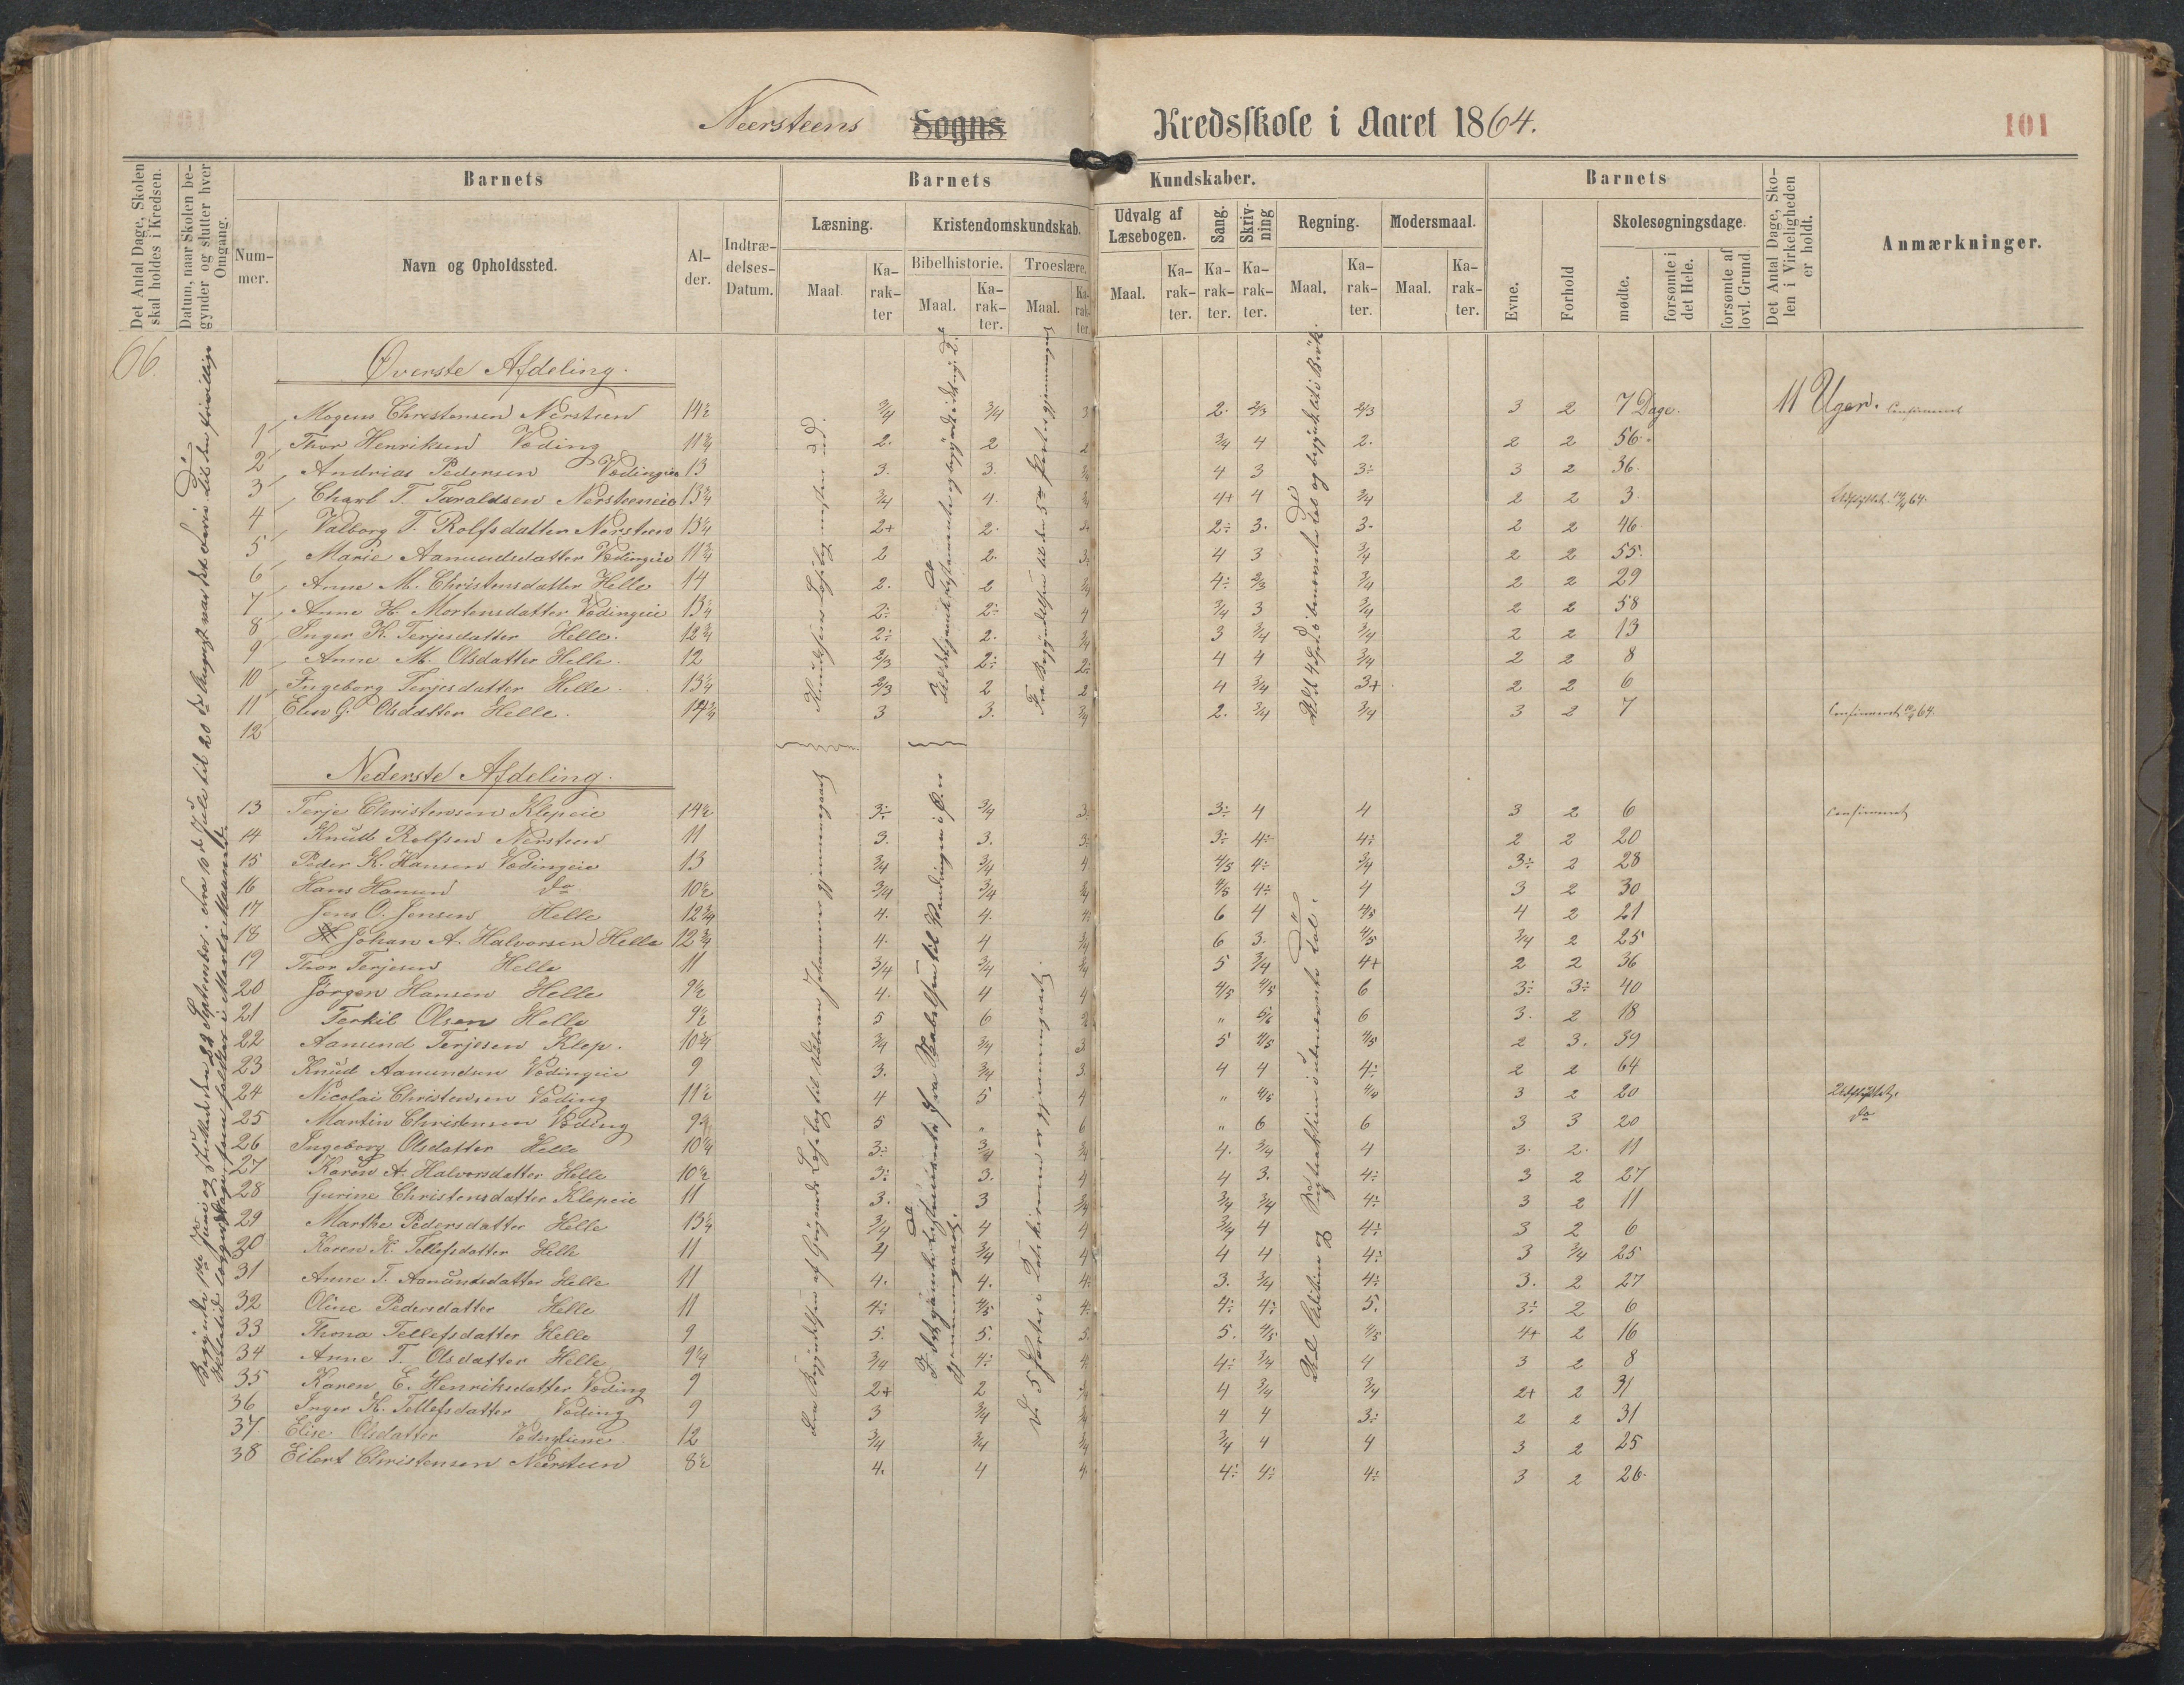 Neersteens Sogns Kredsskole i Aaret 1864.
101
Det Antal Dage, Skolen skal holdes i Kredsen.
Datum, naar Skolen begynder og slutter hver Omgang.
Barnets
Nummer.
Navn og Opholdssted.
Alder.
Indtrædelses-Datum.
Barnets Kundskaber.
Læsning.
Maal.
Karakter
Kristendomskundskab.
Bibelhistorie.
Maal.
Karakter.
Troeslære.
Maal.
Karakter.
Udvalg af Læsebogen.
Maal.
Karakter.
Sang.
Karakter.
Skrivning
Karakter.
Regning.
Maal.
Karakter.
Modersmaal.
Maal.
Karakter.
Barnets
Evne.
Forhold
Skolesøgningsdage.
mødte.
forsømte i det Hele.
forsømte af lovl. Grund
Det Antal Dage, Skolen i Virkeligheden er holdt.
Anmærkninger.
66.
Øverste Afdeling.
Mogens Christensen Nersteen 14½ 3/4 3/4 3 2. 2/3 2/3 3 2 7 Dage. 11 Uger. Confirmeret
1 Thor Henriksen Voding 11¾ 2. 2 2 3/4 4 2. 2 2 56.
2 Andrias Pedersen Vodingeie 13 3. 3. 3/4 4 3 3÷ 3 2 36.
3 Charl T. Taraldsen Nersteeneie 13¾ 3/4 4. 3/4 4+ 4 3/4 2 2 3.
4 Valborg T. Rolfsdatter Nersteen 13¼ 2+ 2. 2÷ 3. 3. 2 2 46
5 Marie Aamundsdatter Vodingeie 11¾ 2 2. 4 3 3/4 2 2 55.
6 Anne M. Christensdatter Helle 14 2. 2 3/4 4÷ 2/3 3/4 2 2 29
7 Anne H. Mortensdatter Vodingeie 13¼ 2÷ 2÷ 4 3/4 3 3/4 2 2 58
8 Inger K. Terjesdatter Helle. 12¾ 2÷ 2. 3/4 3 3/4 3/4 2 2 13
9 Anne M. Olsdatter Helle. 12 2/3 2÷ 2÷ 4 4 3/4 2 2 8
10 Ingeborg Terjesdatter Helle. 13¼ 2/3 2 2 4 3/4 3+ 2 2 6
11 Elen G. Olsdatter Helle. 14¾ 3 3. 3/4 2. 3/4 3/4 3 2 7 Confirmeret
12
Nederste Afdeling.
13 Terje Christensen Klepeie 14½ 3÷ 3/4 3 3÷ 4 4 3 2 6 Confirmeret
14 Knudt Rolfsen Nersteen 11 3. 3. 3÷ 3÷ 4÷ 4÷ 2 2 20
15 Peder K. Hansen Vodingeie 13 3/4 3/4 4 4/5 4÷ 3/4 3÷ 2 28
16 Hans Hansen do 10½ 3/4 3/4 3/4 4/5 4÷ 4 3 2 30
17 Jens O. Jensen Helle 12¾ 4. 4. 4÷ 6 4 4/5 4 2 21
18 Johan A. Halvorsen Helle 12¾ 4. 4 3/4 6 3. 4/5 3/4 2 25
19 Thor Terjesen Helle 11 3/4 3/4 3/4 5 3/4 4+ 2 2 36
20 Jørgen Hansen Helle 9½ 4. 4 4 4/5 4/5 6 3÷ 3÷ 40
21 Terkil Olsen Helle 9½ 5 6 " 5/6 6 3. 2 18
22 Aanund Terjesen Klep. 10¾ 3/4 3/4 3 5 4/5 4/5 2 3. 39
23 Knud Aanundsen Vodingeie 9 3. 3/4 3 4 4 4÷ 2 2 64
24 Nicolai Christensen Voding 11½ 4 5 4 " 4/5 3 2 20
25 Martin Christensen Voding 5 " 6 " 6 6 3 3 20 do
26 Ingeborg Olsdatter Helle 10¼ 3÷ 3/4 3/4 4. 3/4 4 3. 2. 11
27 Karen A. Halvorsdatter Helle 10½ 3÷ 3. 4 4 3. 4÷ 3 2 27
28 Gurine Christensdatter Klepeie 11 3. 3 3/4 3/4 3/4 4÷ 3 2 11
29 Marthe Pedersdatter Helle 13¼ 3/4 4 4 3/4 4 4÷ 3 2 6
30 Karen K. Tellefsdatter Helle 11 4 3/4 4 4 4 4÷ 3 3/4 25
31 Anne T. Aanundsdatter Helle 11 4. 4. 4÷ 3. 3/4 4÷ 3. 2 27
32 Oline Pedersdatter Helle 11 4÷ 4/5 4÷ 4÷ 4÷ 5. 3÷ 2 6
33 Thona Tellefsdatter Helle 9 5. 5. 5. 5. 4/5 4/5 4+ 2 16
34 Anne T. Olsdatter Helle 9¼ 3/4 4÷ 4. 4÷ 3/4 4 3 2 8
35 Karen E. Henriksdatter Voding 9 2+ 2 3/4 4 3/4 3/4 2+ 2 31
36 Inger K. Tellefsdatter Voding 9 3 3/4 3/4 4 4 3÷ 2 2 31
37 Elise Olsdatter 12 3/4 3/4 3/4 3/4 4 4 3 2 25
38 Eilert Christensen Neersteen 8½ 4. 4 4. 4÷ 4÷ 4÷ 3 2 26.